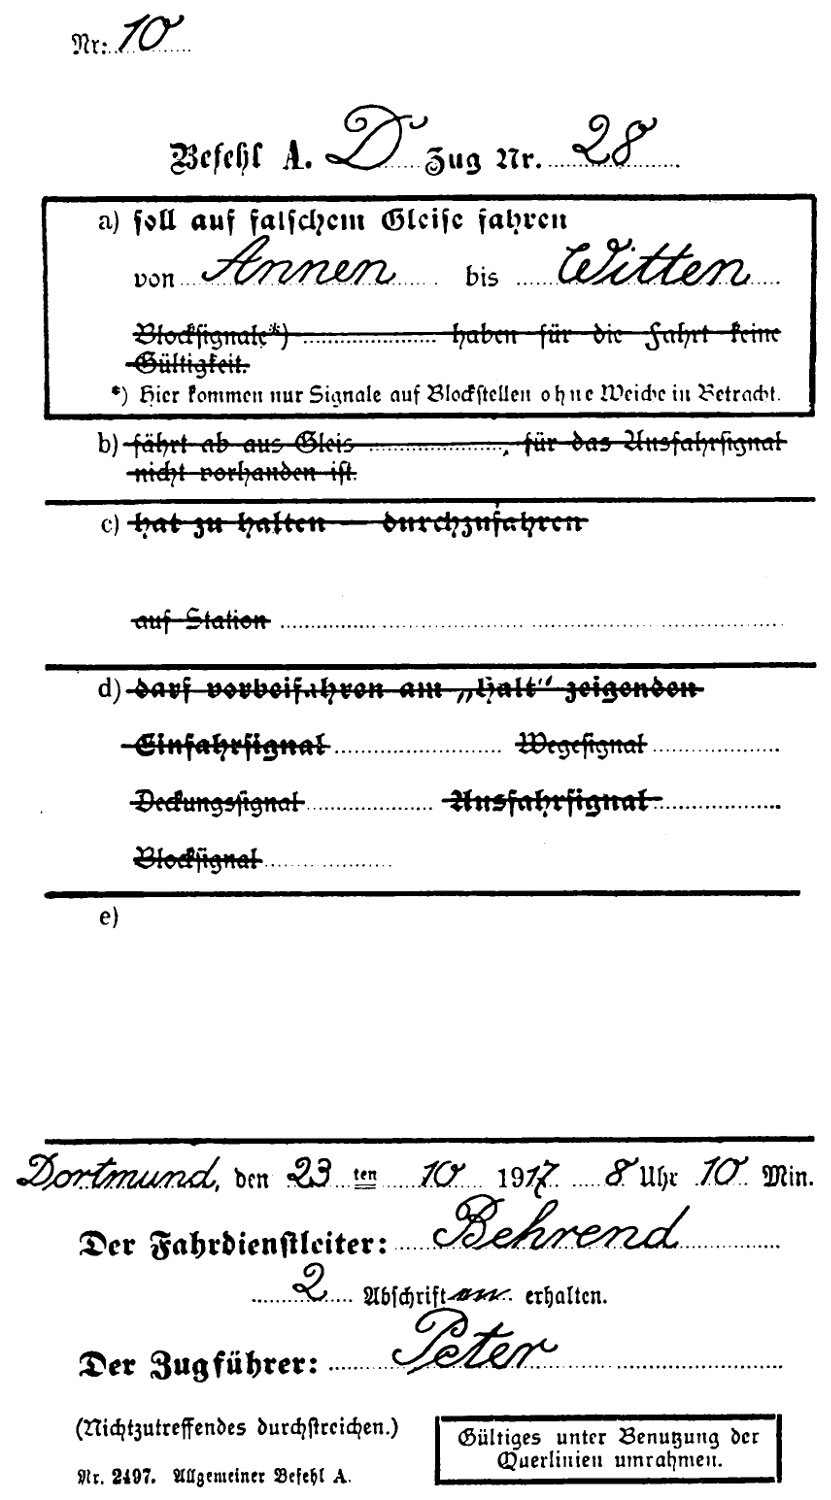 Nr: 10
Befehl A. D Zug Nr. 28
a) soll auf falschem Gleise fahren
von Annen bis Witten
Blocksignale*) haben für die Fahrt keine
Gültigkeit.
*) Hier kommen nur Signale auf Blockstellen ohne Weiche in Betracht.
b) fährt ab aus Gleis , für das Ausfahrsignal
nicht vorhanden ist.
c) hat zu halten — durchzufahren
auf Station
d) darf vorbeifahren am „Halt“ zeigenden
Einfahrsignal Wegesignal
Deckungssignal Ausfahrsignal
Blocksignal
e)
Dortmund, den 23 ten 10 1917 8 Uhr 10 Min.
Der Fahrdienstleiter: Behrend
2 Abschriften erhalten.
Der Zugführer: Peter
(Nichtzutreffendes durchstreichen.)
Gültiges unter Benutzung der
Querlinien umrahmen.
Nr. 2497. Allgemeiner Befehl A.